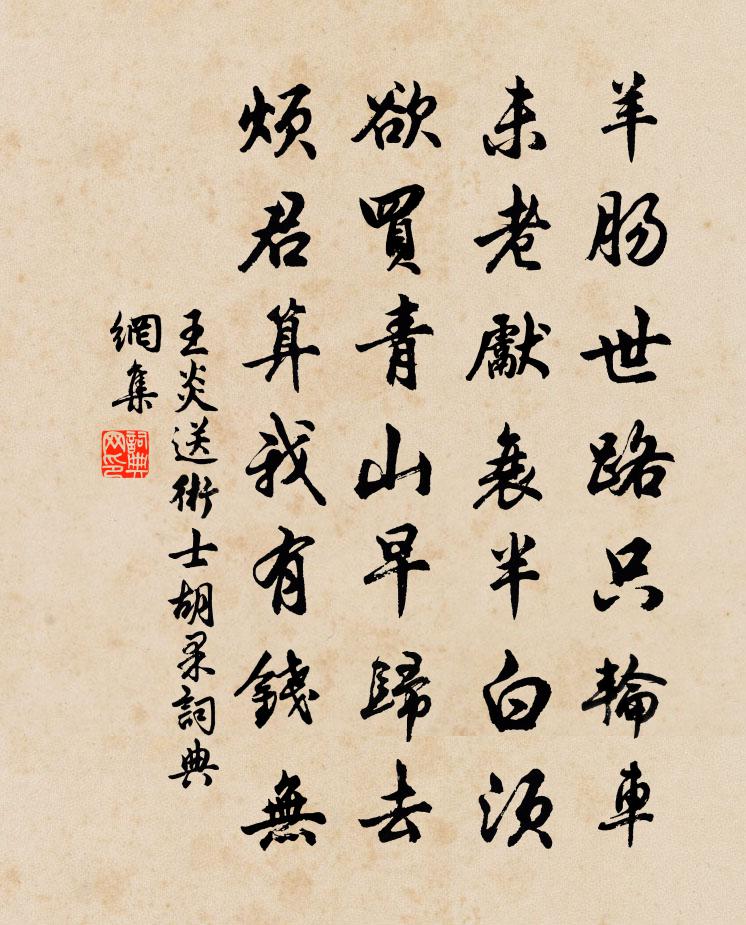 羊腸世路只輪車
未老獻衰半白須
欲買青山早歸去
煩君算我有錢無
王炎送術士胡杲詞典
網集
詞典
网印